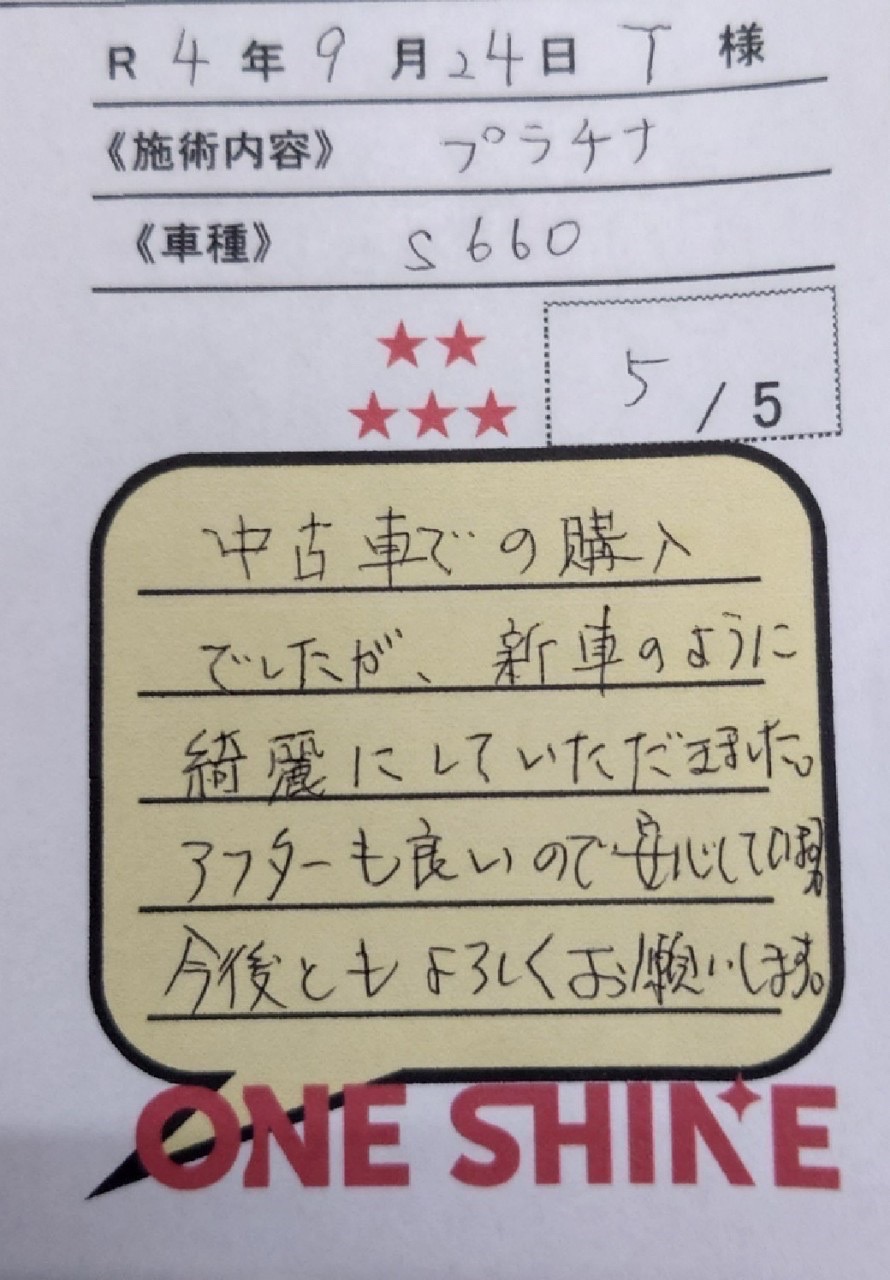 R 4 年 9 月 24 日 T 様
《施術内容》 プラチナ
《車種》 S660
5 / 5
中古車での購入
でしたが、新車のように
綺麗にしていただきました。
アフターも良いので安心して
今後ともよろしくお願いします。
ONE SHINE